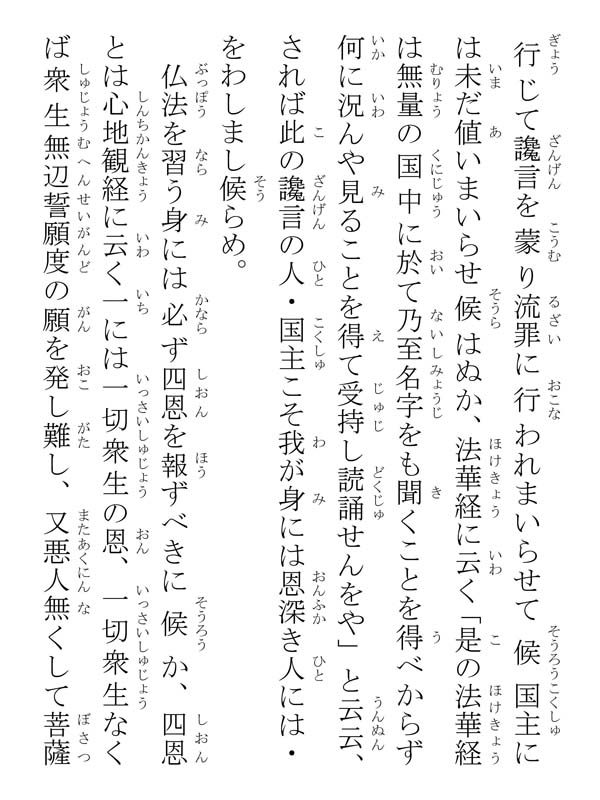 行じて讒言を蒙り流罪に行われまいらせて候国主に
は未だ値いまいらせ候はぬか、法華経に云く「是の法華経
は無量の国中に於て乃至名字をも聞くことを得べからず
何に況んや見ることを得て受持し読誦せんをや」と云云、
されば此の讒言の人・国主こそ我が身には恩深き人には・
をわしまし候らめ。
仏法を習う身には必ず四恩を報ずべきに候か、四恩
とは心地観経に云く一には一切衆生の恩、一切衆生なく
ば衆生無辺誓願度の願を発し難し、又悪人無くして菩薩